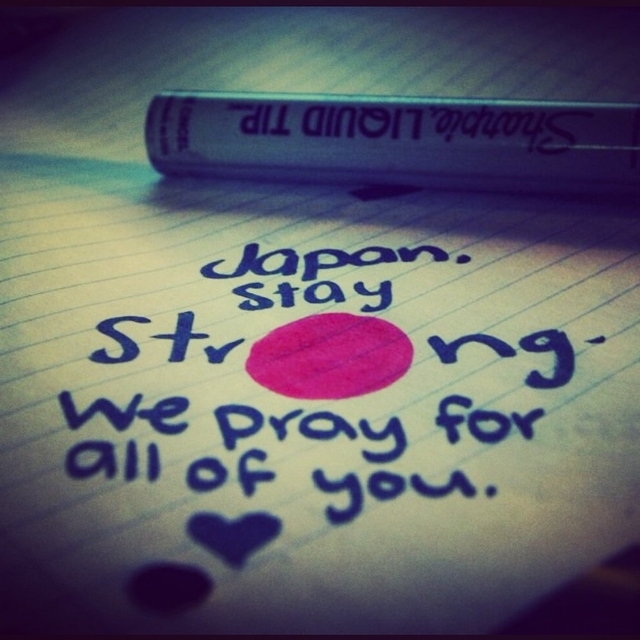 Sharpie. LIQUID TIP
Japan.
stay
Strong.
We pray for
all of you.